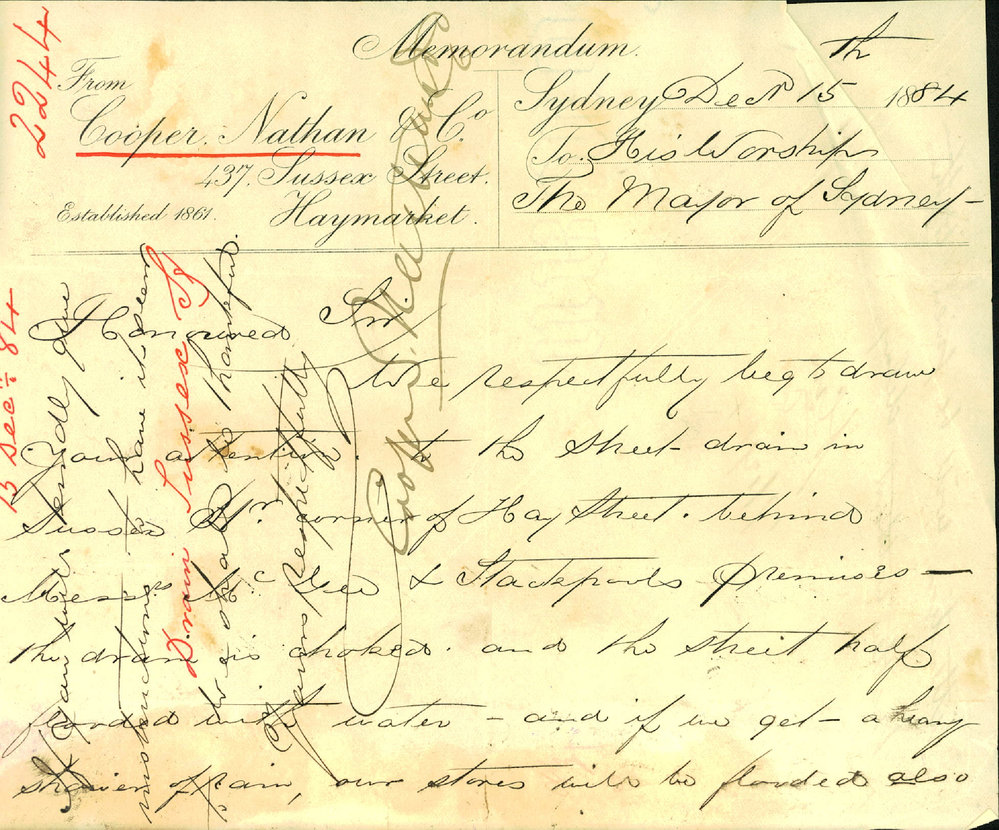 Memorandum.
From
Cooper, Nathan & Co
437, Sussex Street.
Established 1861. Haymarket.
Sydney Decr 15th 1884
To His Worship
The Mayor of Sydney-
Honoured Sir
We respectfully beg to draw
your attention to the street drain in
Sussex Str corner of Hay Street. behind
Messrs McGee & Stackpools premises -
the drain is choked. and the street half
flooded with water - and if we get - a heavy
shower of rain, our stores will be flooded also
If you will kindly give
instructions to have it seen
to we shall be thankful.
Yours respectfully
Cooper Nathan & Co
2244
15 Decr 84
Drain Sussex St